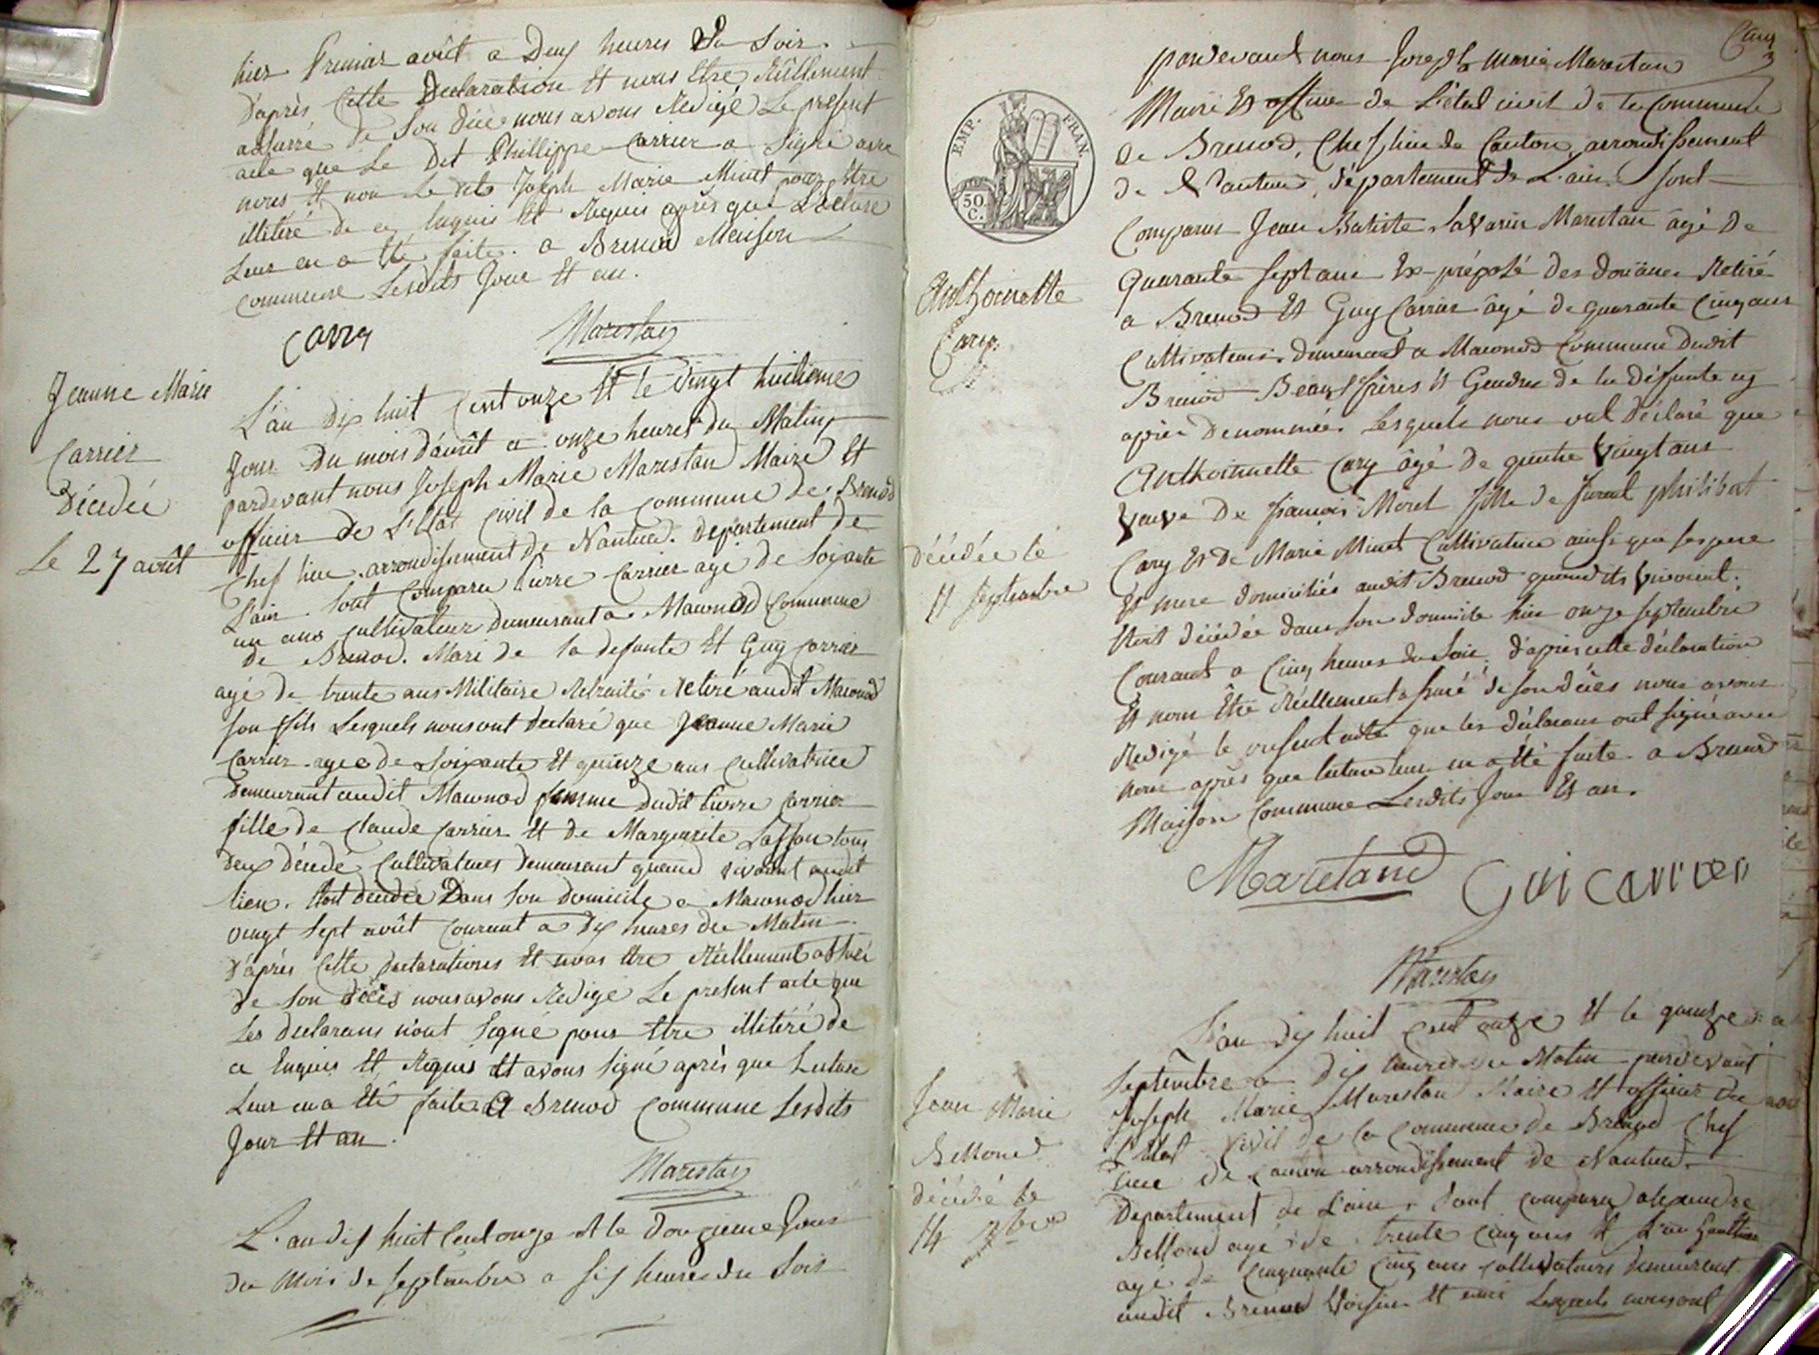 hier Premier août a Deux heures Du Soir.
d'après Cette Declaration Et nous Etre Réellement
assurré de Son décè nous avons Redigé Le présent
acte que Le Dit Phillippe Carrier a Signé avec
nous Et non Le dit Joseph Marie Minet pour Etre
illitéré de ce Enquis Et Requis après que Lecture
Leur en a Eté faite. a Brenod Maison
Commune Lesdits Jour Et an.
Carry
Marestan
Jeanne Marie
Carrier
Décédée
Le 27 août
L'an dix huit Cent onze Et le Vingt huitieme
Jour Du mois d'août a onze heures du Matin
pardevant nous Joseph Marie Marestan Maire Et
officier de L'Etat Civil de la Commune de Brenod
Chef lieu arrondissement De Nantua. Departement de
L'ain. Sont Comparu Pierre Carrier agé de Soixante
un ans Cultivateur Demeurant a Maconod Commune
de Brenod. Mari de la defunte Et Guy Carrier
agé de trente ans Militaire Retraité Retiré audit Maconod
Son fils Lesquels nous ont Declaré que Jeanne Marie
Carrier agée de Soixante Et quinze ans Cultivatrice
Demeurant audit Maconod femme Dudit Pierre Carrier
fille de Claude Carrier Et de Marguerite Tous
deux décédé Cultivateurs Demeurant quand vivoient audit
lieu. Etoit décédée Dans Son Domicile a Maconod hier
Vingt Sept août Courant a dix heures du Matin.
d'après Cette Declarations Et nous Etre Réellement assuré
de Son décès nous avons Redigé Le present acte que
Les declarans n'ont Signé pour Etre illitéré de
ce Enquis Et Requis Et avons Signé après que Lecture
Leur en a Eté faite a Brenod Commune Lesdits
Jour Et an.
Marestan
L'an dix huit Cent onze Et le Douzieme Jour
du Mois de Septembre a Six heures du Soir
Cary
3
EMP. FRAN.
50.
C.
pardevant nous Joseph Marie Marestan
Maire Et officier de L'état civil de la Commune
de Brenod, Chef lieu de Canton, arrondissement
de Nantua, département de L'ain. Sont
Comparus Jean Batiste Savarin Marestan âgé de
Quarante Sept ans Ex-préposé des douanes Retiré
a Brenod Et Guy Carrier âgé de quarante Cinq ans
Cultivateur. demeurant a Maconod Commune dudit
Brenod Beaux frères Et Gendre de la Défunte cy
après Denommée. Lesquels nous ont déclaré que
Anthoinette Cary âgé de quatre Vingt ans
Veuve De françois Morel fille de Philibert
Cary Et de Marie Minet Cultivatrice ainsi que Ses pere
Et mere domiciliés audit Brenod quand ils Vivoient.
Etoit décédée dans Son domicile hier onze Septembre
Courant a Cinq heures du Soir, d'après cette déclaration
Et nous être Réellement assuré de Son décès nous avons
Redigé le présent acte que les déclarans ont Signé avec
nous après que lecture leur en a été faite. a Brenod
Maison Commune Lesdits Jour Et an.
Anthoinette
Cary.
décédée le
11 Septembre
Maretand
Gui carrier
Marestan
L'an dix huit Cent onze Et le quinze
Septembre a dix heures du Matin pardevant nous
Joseph Marie Marestan Maire Et officier De
L'Etat Civil de la Commune de Brenod Chef
lieu de Canton arrondissement de Nantua.
Departement de L'ain. Sont Comparu alexandre
Bellond agé de trente Cinq ans Et
agé de Cinquante Cinq ans Cultivateurs Demeurant
audit Brenod Voisin Et ami Lesquels nous ont
Jean Marie
Bellond
décédé le
14 7bre